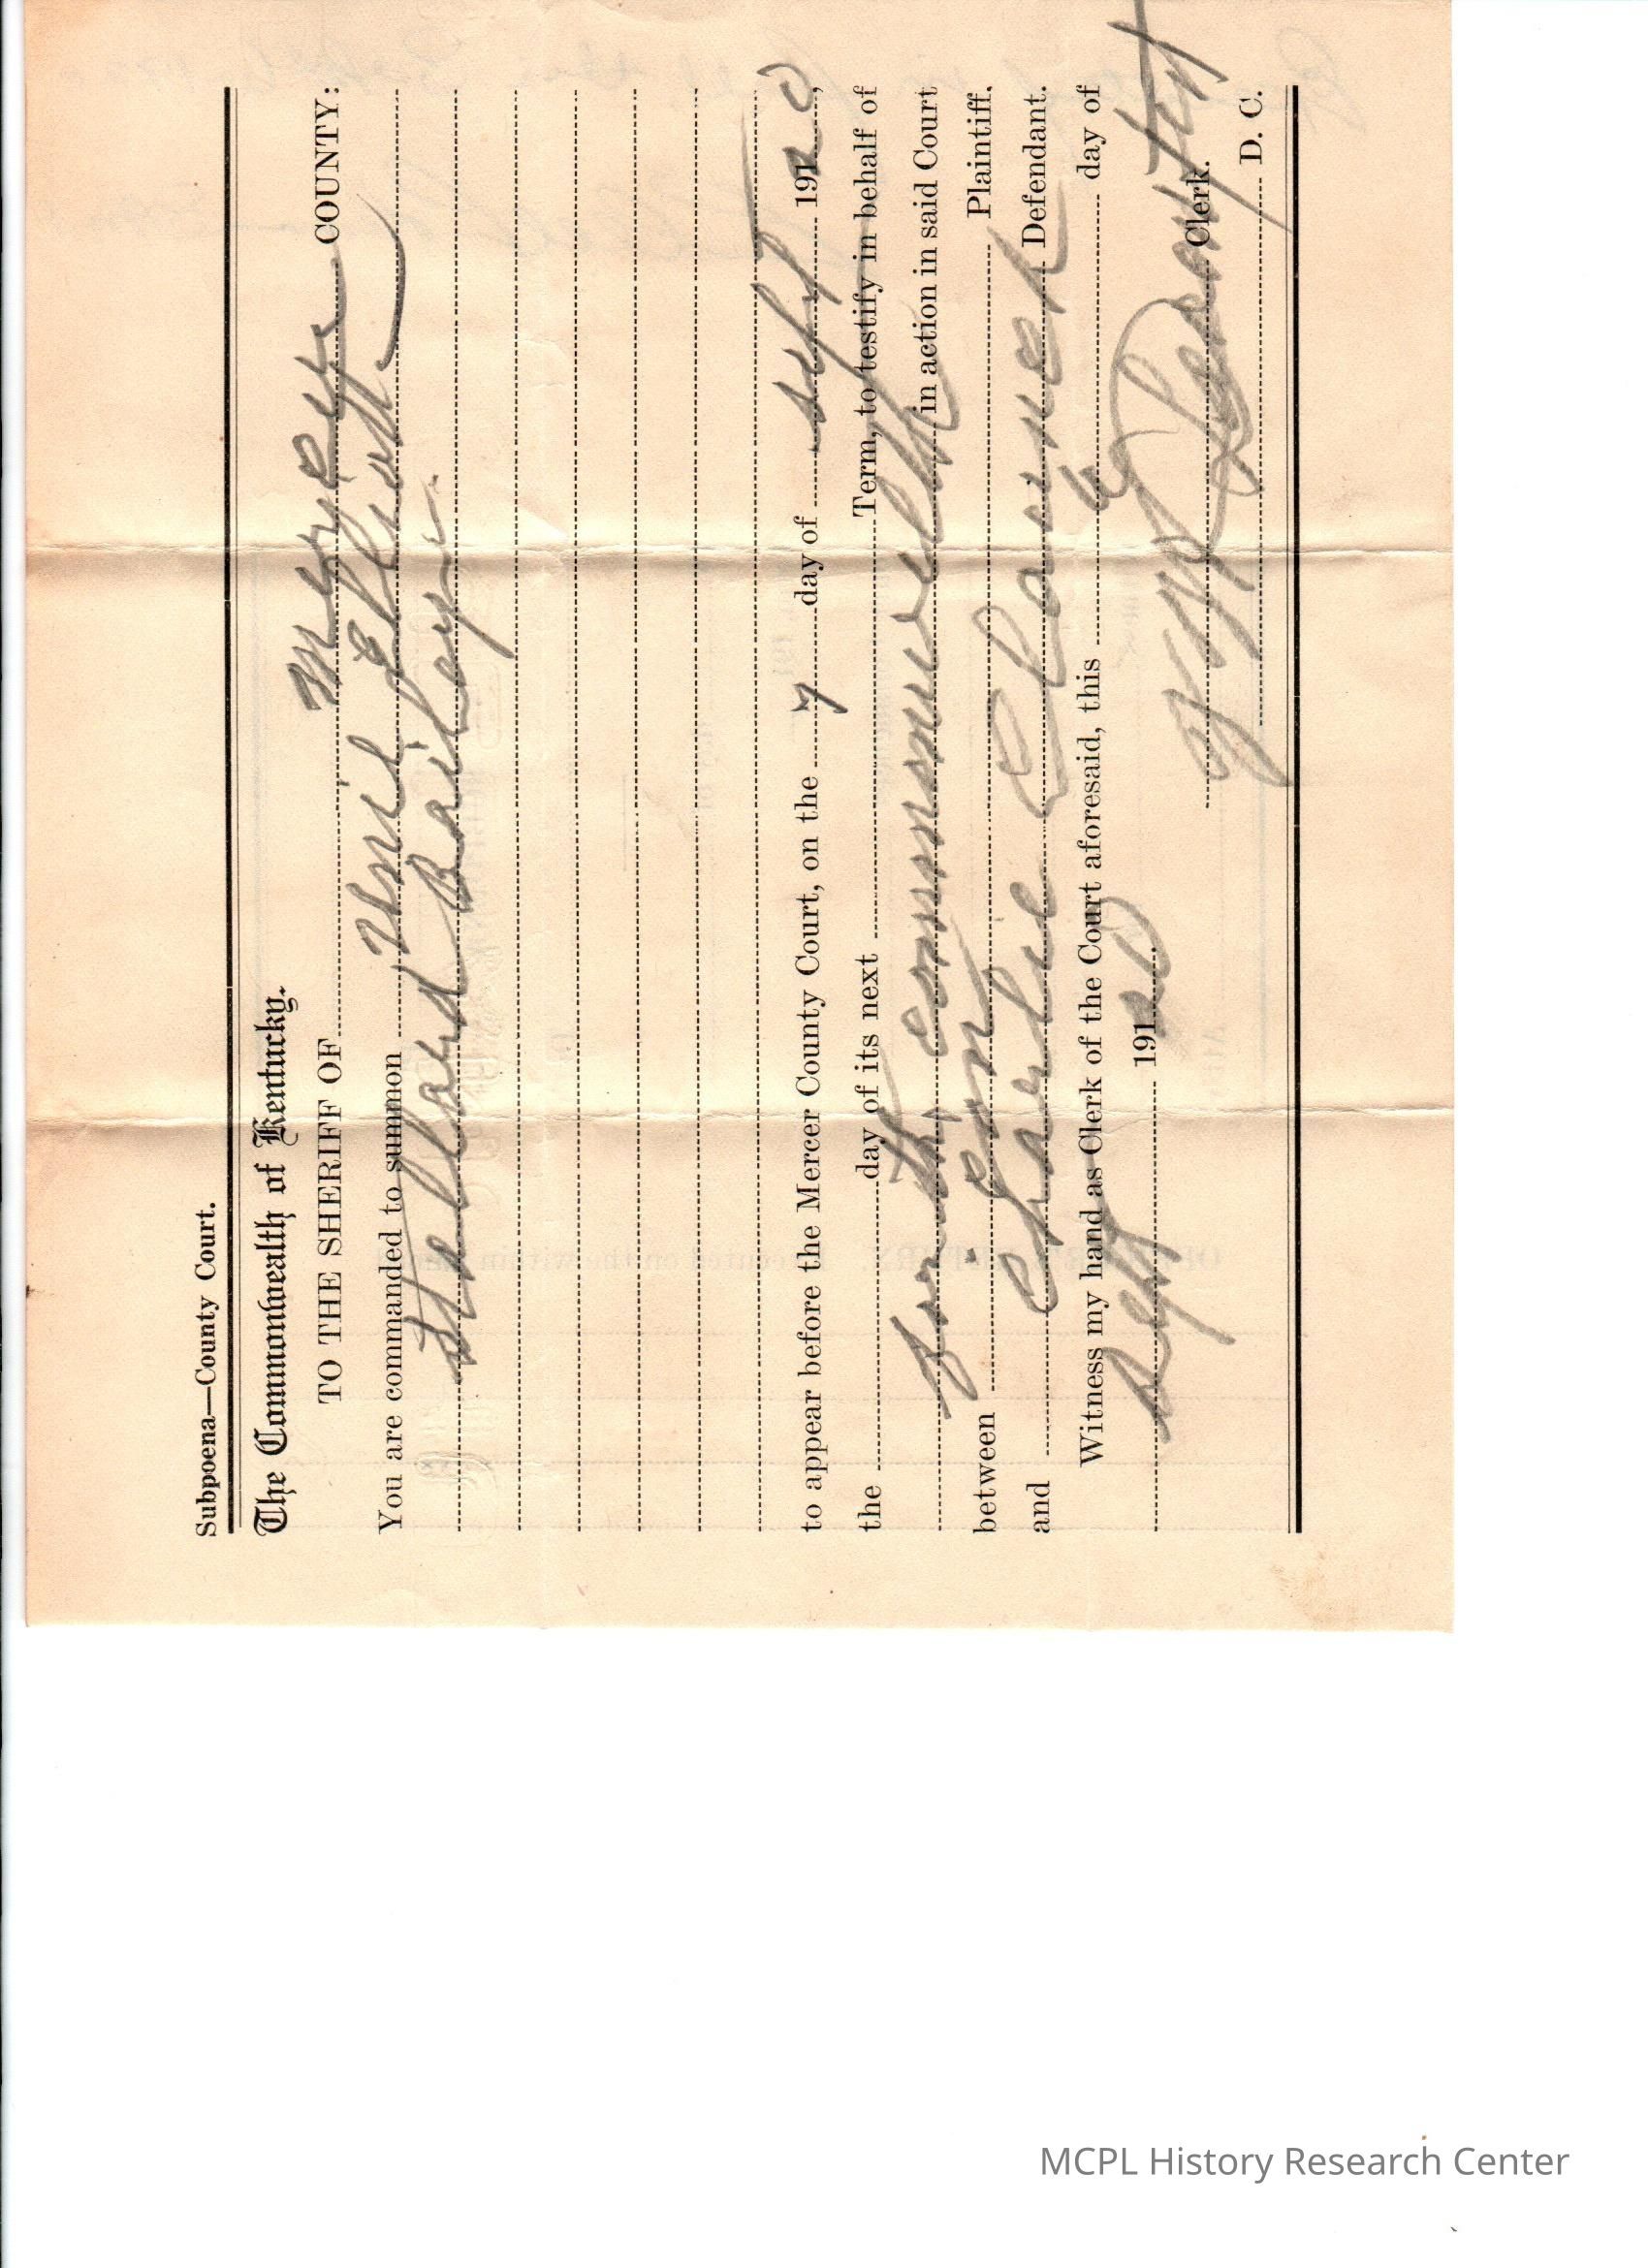 Subpoena—County Court.
The Commonwealth of Kentucky.
TO THE SHERIFF OF Mercer COUNTY:
You are commanded to summon Elliott
Bailey
to appear before the Mercer County Court, on the 7 day of Sept 1920,
the day of its next Term, to testify in behalf of
commonwealth in action in said Court
between Com Plaintiff.
and Charlie Defendant.
Witness my hand as Clerk of the Court aforesaid, this 6 day of
Sept 1920.
Clerk.
D. C.
MCPL History Research Center